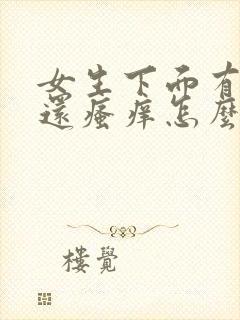 女生下面有
還瘙痒怎麼
樓覺